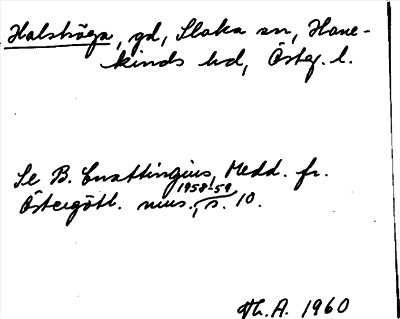 Halshöga, gd, Slaka sn, Hane-
kinds hd, Österg. l.
Se B. Cnattingius, Medd. fr.
Östergötl. mus. 1958-59, s. 10.
Th. A. 1960